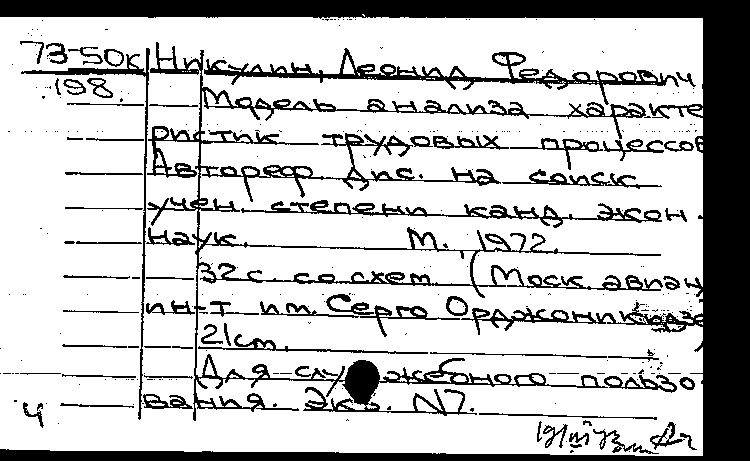 73-50к Никулин, Леонид Федорович.
198.
Модель анализа характе
ристик трудовых процессов
Автореф дис. на соиск.
учен. степени канд. экон.
наук. М., 1972.
32 с. со схем. (Моск. авиац
ин-т им. Серго Орджоникидзе)
21 cm.
Для служебного пользо-
вания. Экз. N7.
4